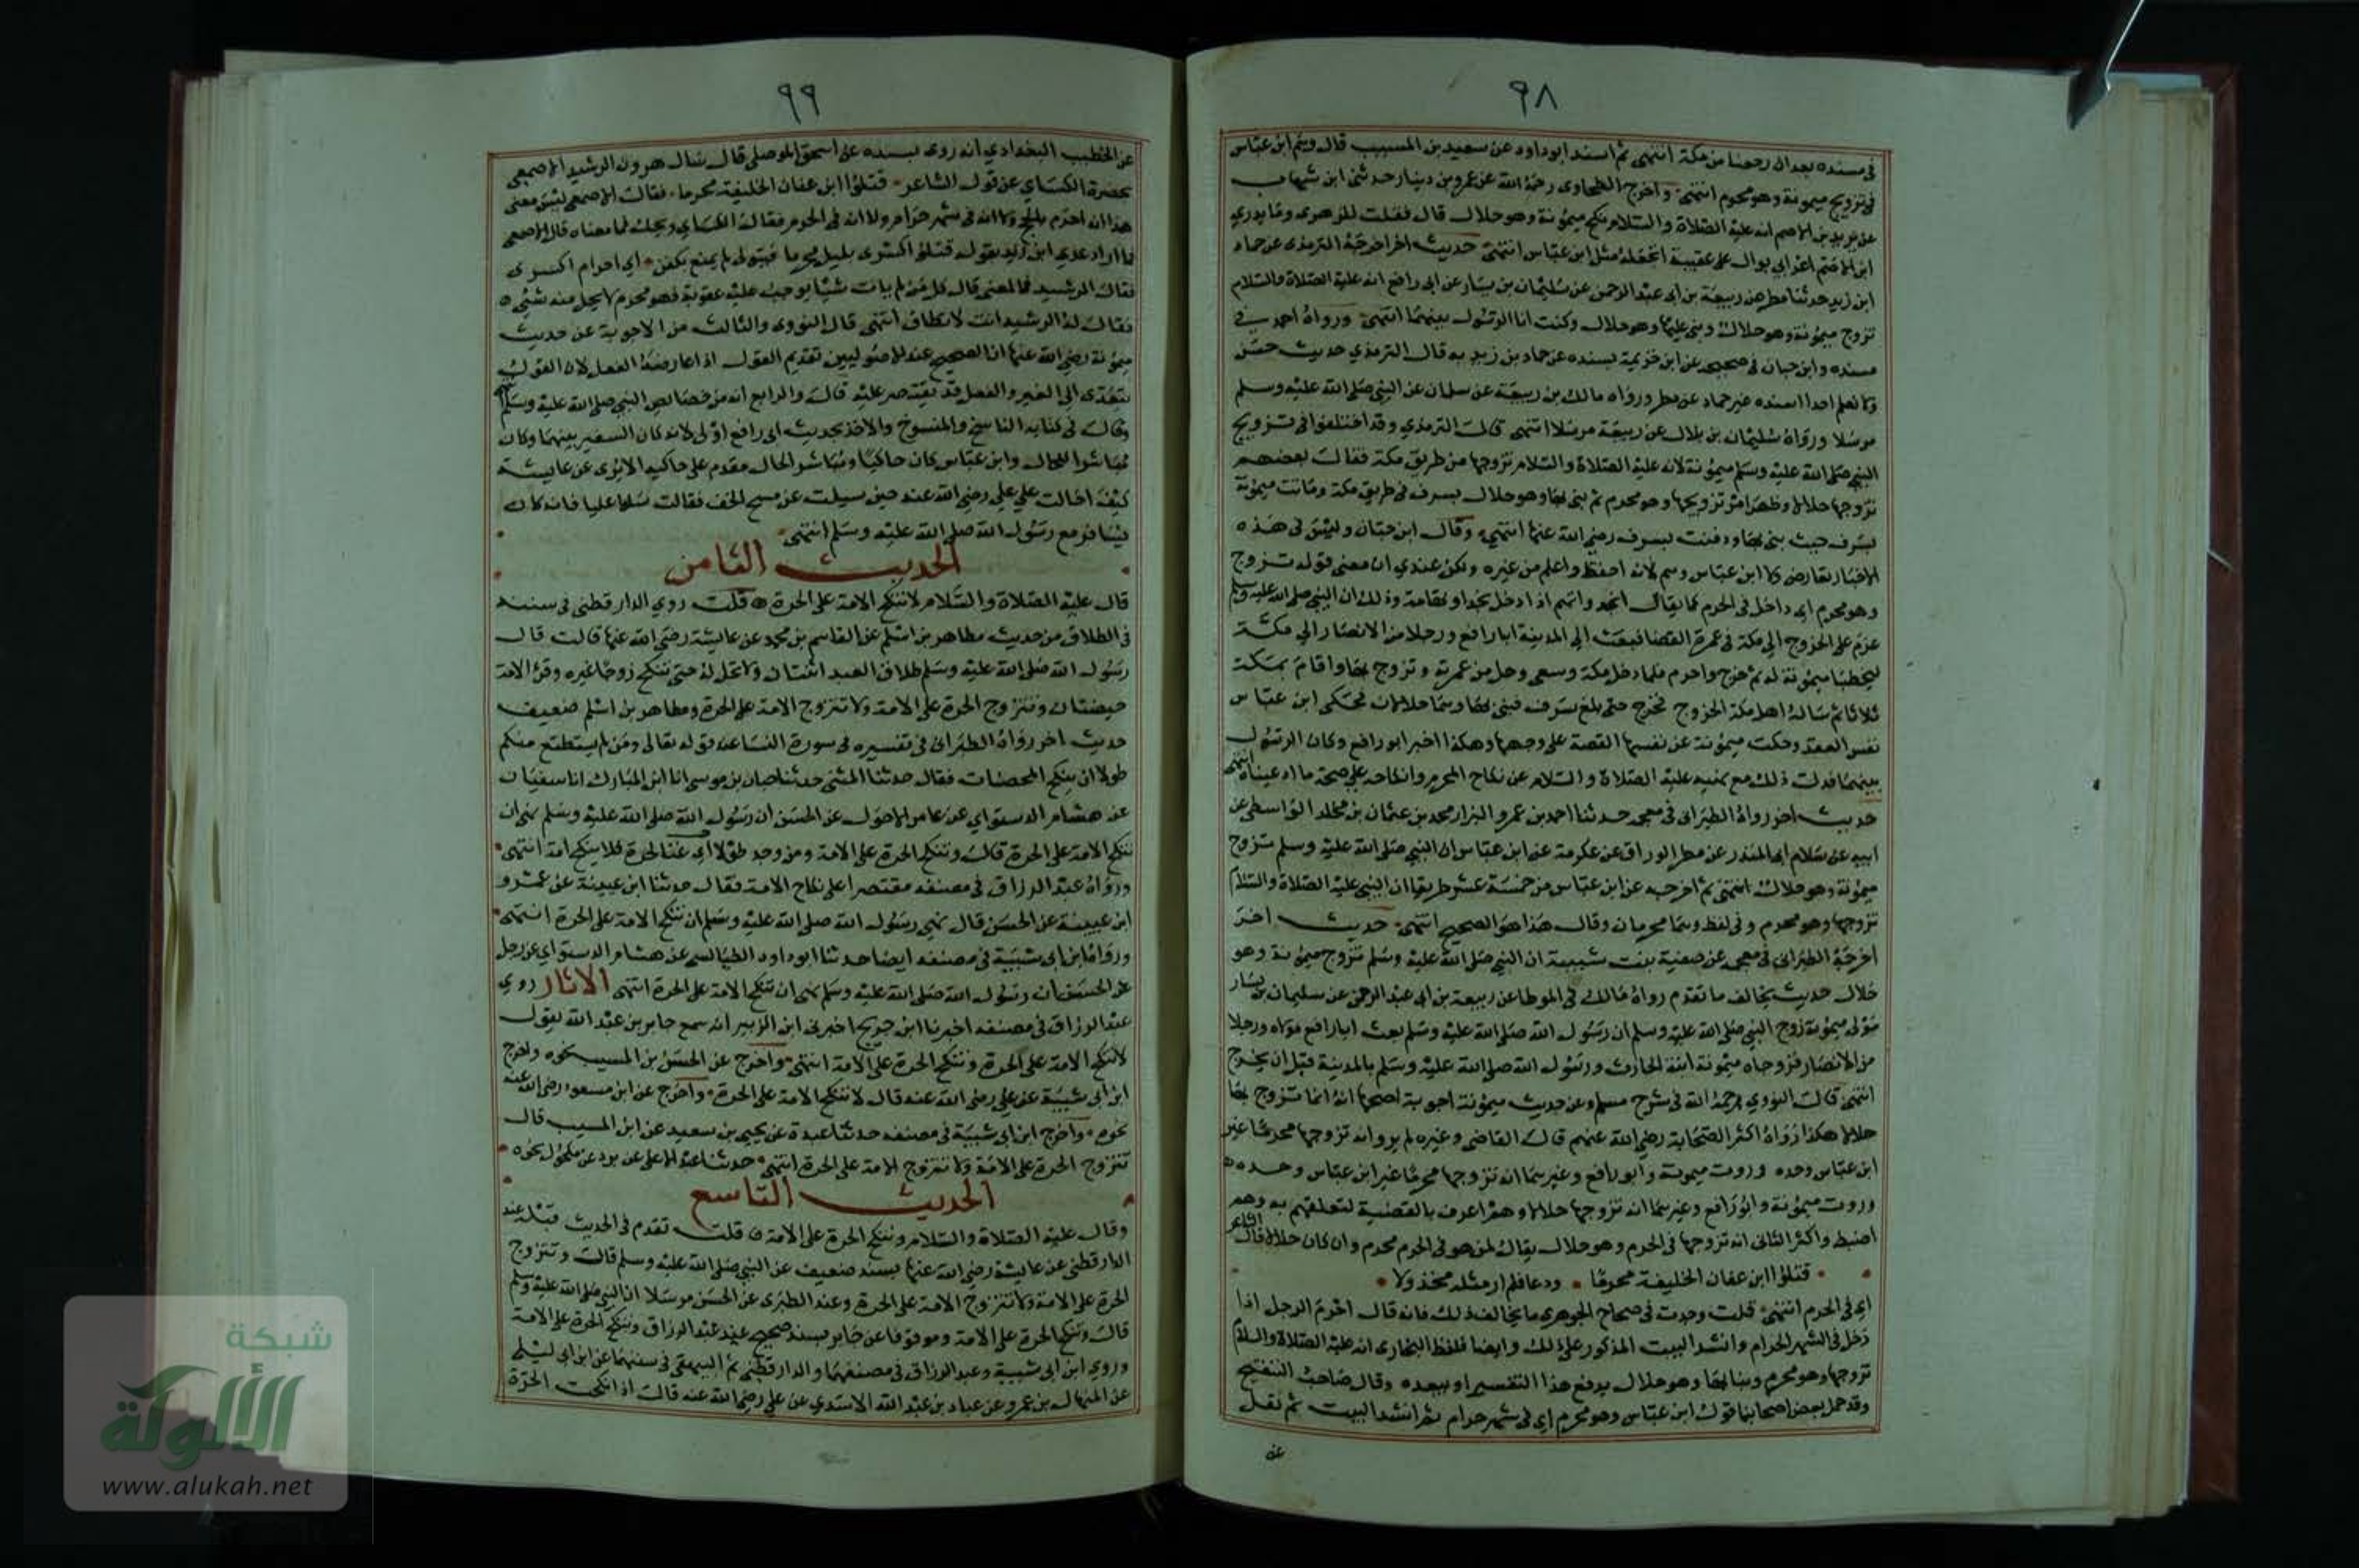 ٩٨
في مسنده بعد ان رجعنا من مكة انتهى ثم اسند ابو داود عن سعيد بن المسيب قال وهم ابن عباس
في تزويج ميمونة وهو محرم انتهى واخرج الطحاوى رحمة الله عن عمرو بن دينار حدثنى ابن شهاب
عن يزيد بن الاصم انه عليه الصلاة والسلام نكح ميمونة وهو حلال قال فقلت للزهرى وما يدري
ابن الاصم اعرابي بوال على عقبيه اتجعله مثل ابن عباس انتهى حديث اخر اخرجه الترمذى عن حماد
ابن زيد حدثنا مطر عن ربيعة بن ابى عبد الرحمن عن سليمان بن يسار عن ابى رافع انه عليه الصلاة والسلام
تزوج ميمونة وهو حلال وبنى عليها وهو حلال وكنت انا الرسول بينهما انتهى ورواه احمد في
مسنده وابن حبان فى صحيحه عن ابن خزيمة بسنده عن حماد بن زيد به قال الترمذي حديث حسن
ولا نعلم احدا اسنده غير حماد عن مطر ورواه مالك بن ربيعة عن سلمان عن النبي صلى الله عليه وسلم
مرسلا ورواه سليمان بن بلال عن ربيعة مرسلا انتهى قال الترمذي وقد اختلفوا في تزويج
النبي صلى الله عليه وسلم ميمونة لانه عليه الصلاة والسلام تزوجها من طريق مكة فقال بعضهم
تزوجها حلالا وظهر امر تزويجها وهو محرم ثم بنى بها وهو حلال بسرف فى طريق مكة وماتت ميمونة
بسرف حيث بنى بها ودفنت بسرف رضي الله عنها انتهى وقال ابن حبان وليس فى هذه
الاخبار تعارض ولا ابن عباس وهم لانه احفظ واعلم من غيره ولكن عندي ان معنى قوله تزوج
وهو محرم اى داخل فى الحرم كما يقال انجد واتهم اذا دخل نجدا وتهامة وذلك ان النبي صلى الله عليه وسلم
عزم على الخروج الى مكة فى عمرة القضا فبعث الى المدينة ابا رافع ورجلا من الانصار الى مكة
ليخطبا ميمونة له ثم خرج واحرم فلما دخل مكة وسعى وحل من عمرته وتزوج بها واقام بمكة
ثلاثا ثم ساله اهل مكة الخروج فخرج حتى بلغ سرف فبنى بها وهما حلالان فحكى ابن عباس
نفس العقد وحكت ميمونة عن نفسها القصة على وجهها وهكذا اخبر ابو رافع وكان الرسول
بينهما فدلت ذلك مع نهيه عليه الصلاة والسلام عن نكاح المحرم وانكاحه على صحة ما ادعيناه انتهى
حديث اخر رواه الطبرانى فى معجمه حدثنا احمد بن عمرو البزار محمد بن عثمان بن مخلد الواسطى عن
ابيه عن سلام ابى المنذر عن مطر الوراق عن عكرمة عن ابن عباس ان النبي صلى الله عليه وسلم تزوج
ميمونة وهو حلال انتهى ثم اخرجه عن ابن عباس من خمسة عشر طريقا ان النبي عليه الصلاة والسلام
تزوجها وهو محرم وفى لفظ وهما محرمان وقال هذا هو الصحيح انتهى حديث اخر
اخرجه الطبرانى فى معجمه عن صفية بنت شيبة ان النبي صلى الله عليه وسلم تزوج ميمونة وهو
حلال حديث يخالف ما تقدم رواه مالك فى الموطا عن ربيعة بن ابى عبد الرحمن عن سليمان بن يسار
مولى ميمونة زوج النبي صلى الله عليه وسلم ان رسول الله صلى الله عليه وسلم بعث ابا رافع مولاه ورجلا
من الانصار فزوجاه ميمونة ابنة الحارث ورسول الله صلى الله عليه وسلم بالمدينة قبل ان يخرج
انتهى قال النووي رحمه الله فى شرح مسلم وعن حديث ميمونة اجوبة اصحها انه انما تزوج بها
حلالا هكذا رواه اكثر الصحابة رضي الله عنهم قال القاضى وغيره لم يرو انه تزوجها محرما غير
ابن عباس وحده وروت ميمونة وابو رافع وغيرهما ان تزوجها محرما غير ابن عباس وحده
وروت ميمونة وابو رافع وغيرهما انه تزوجها حلالا وهم اعرف بالقضية لتعلقهم به وهم
اضبط واكثر الثانى انه تزوجها فى الحرم وهو حلال يقال لمن هو فى الحرم محرم وان كان حلالا قال الشاعر
قتلوا ابن عفان الخليفة محرما ودعا فلم ار مثله مخذولا
اى فى الحرم انتهى قلت وجدت فى صحاح الجوهري ما يخالف ذلك فانه قال احرم الرجل اذا
دخل فى الشهر الحرام وانشد البيت المذكور على ذلك وايضا فلفظ البخارى انه عليه الصلاة والسلام
تزوجها وهو محرم وبنا بها وهو حلال يدفع هذا التفسير او يبعده وقال صاحب التنقيح
وقد حمل بعض اصحابنا قول ابن عباس وهو محرم اي فى شهر حرام ثم انشد البيت ثم نقل
عن
٩٩
عن الخطيب البغدادي انه روى بسنده عن اسحق الموصلى قال سال هرون الرشيد الاصمعى
بحضرة الكسائي عن قول الشاعر قتلوا ابن عفان الخليفة محرما فقال الاصمعى ليس معنى
هذا انه احرم بالحج ولا انه فى شهر حرام ولا انه فى الحرم فقال الكسائي ويحك فما معناه قال الاصمعى
فما اراد عدي ابن زيد بقوله قتلوا اكسرى بليل محرما فتولى لم يمتع بكفن اى احرام لكسرى
فقال الرشيد فما المعنى قال كل من لم يات شيئا يوجب عليه عقوبة فهو محرم لا يحل منه شئ
فقال له الرشيد انت لا تطاق انتهى قال النووى والثالث من الاجوبة عن حديث
ميمونة رضي الله عنها ان الصحيح عند الاصوليين تقديم القول اذا عارضه الفعل لان القول
يتعدى الى الغير والفعل قد يقتصر عليه قال والرابع انه من خصائص النبي صلى الله عليه وسلم
وقال فى كتابه الناسخ والمنسوخ والاخذ بحديث ابى رافع اولى لانه كان السفير بينهما وكان
مباشرا للحال وابن عباس كان حاكيا ومباشر الحال مقدم على حاكيه الا ترى عن عايشة
كيف احالت على علي رضي الله عنه حين سيلت عن مسح الخف فقالت سلوا عليا فانه كان
يسافر مع رسول الله صلى الله عليه وسلم انتهى
الحديث الثامن
قال عليه الصلاة والسلام لا تنكح الامة على الحرة قلت روي الدارقطنى فى سننه
فى الطلاق من حديث مظاهر بن اسلم عن القاسم بن محمد عن عايشة رضي الله عنها قالت قال
رسول الله صلى الله عليه وسلم طلاق العبد اثنتان ولا تحل له حتى تنكح زوجا غيره وقرء الامة
حيضتان وتتزوج الحرة على الامة ولا تتزوج الامة على الحرة ومظاهر بن اسلم ضعيف
حديث اخر رواه الطبرانى فى تفسيره فى سورة النسا عند قوله تعالى ومن لم يستطع منكم
طولا ان ينكح المحصنات فقال حدثنا المثنى حدثنا حبان بن موسى انا ابن المبارك انا سفيان
عن هشام الدستواي عن عامر الاحول عن الحسن ان رسول الله صلى الله عليه وسلم نهى ان
تنكح الامة على الحرة قال وتنكح الحرة على الامة ومن وجد طولا لحرة فلا ينكح امة انتهى
ورواه عبد الرزاق فى مصنفه مقتصرا على نكاح الامة فقال حدثنا ابن عيينة عن عمرو
ابن عبيد عن الحسن قال نهى رسول الله صلى الله عليه وسلم ان تنكح الامة على الحرة انتهى
ورواه ابن ابى شيبة فى مصنفه ايضا حدثنا ابو داود الطيالسى عن هشام الدستواي عن رجل
عن الحسن ان رسول الله صلى الله عليه وسلم نهى ان تنكح الامة على الحرة انتهى الاثار روي
عبد الرزاق فى مصنفه اخبرنا ابن جريج اخبرنى ابن الزبير انه سمع جابر بن عبد الله يقول
لا تنكح الامة على الحرة وتنكح الحرة على الامة انتهى واخرج عن الحسن بن المسيب نحوه واخرج
ابن أبى شيبة عن على رضي الله عنه قال لا تنكح الامة على الحرة واخرج عن ابن مسعود رضى الله عنه
نحوه واخرج ابن ابى شيبة فى مصنفه حدثنا عبدة عن يحيى بن سعيد عن ابن المسيب قال
تتزوج الحرة على الامة ولا تتزوج الامة على الحرة انتهى حدثنا عبد الاعلى عن برد عن مكحول نحوه
الحديث التاسع
وقال عليه الصلاة والسلام وتنكح الحرة على الامة قلت تقدم فى الحديث قبله عند
الدارقطنى عن عايشة رضي الله عنها بسند ضعيف عن النبي صلى الله عليه وسلم قال وتتزوج
الحرة على الامة ولا تتزوج الامة على الحرة وعند الطبرى عن الحسن مرسلا ان النبي صلى الله عليه وسلم
قال وتنكح الحرة على الامة وموقوفا عن جابر بسند صحيح عند عبد الرزاق وتنكح الحرة على الامة
وروي ابن ابى شيبة وعبد الرزاق فى مصنفهما والدارقطنى ثم البيهقى فى سننهما عن ابن ابى ليلى
عن المنهال بن عمرو عن عباد بن عبد الله الاسدي عن علي رضي الله عنه قال اذا نكحت الحرة
شبكة
الألوكة
www.alukah.net